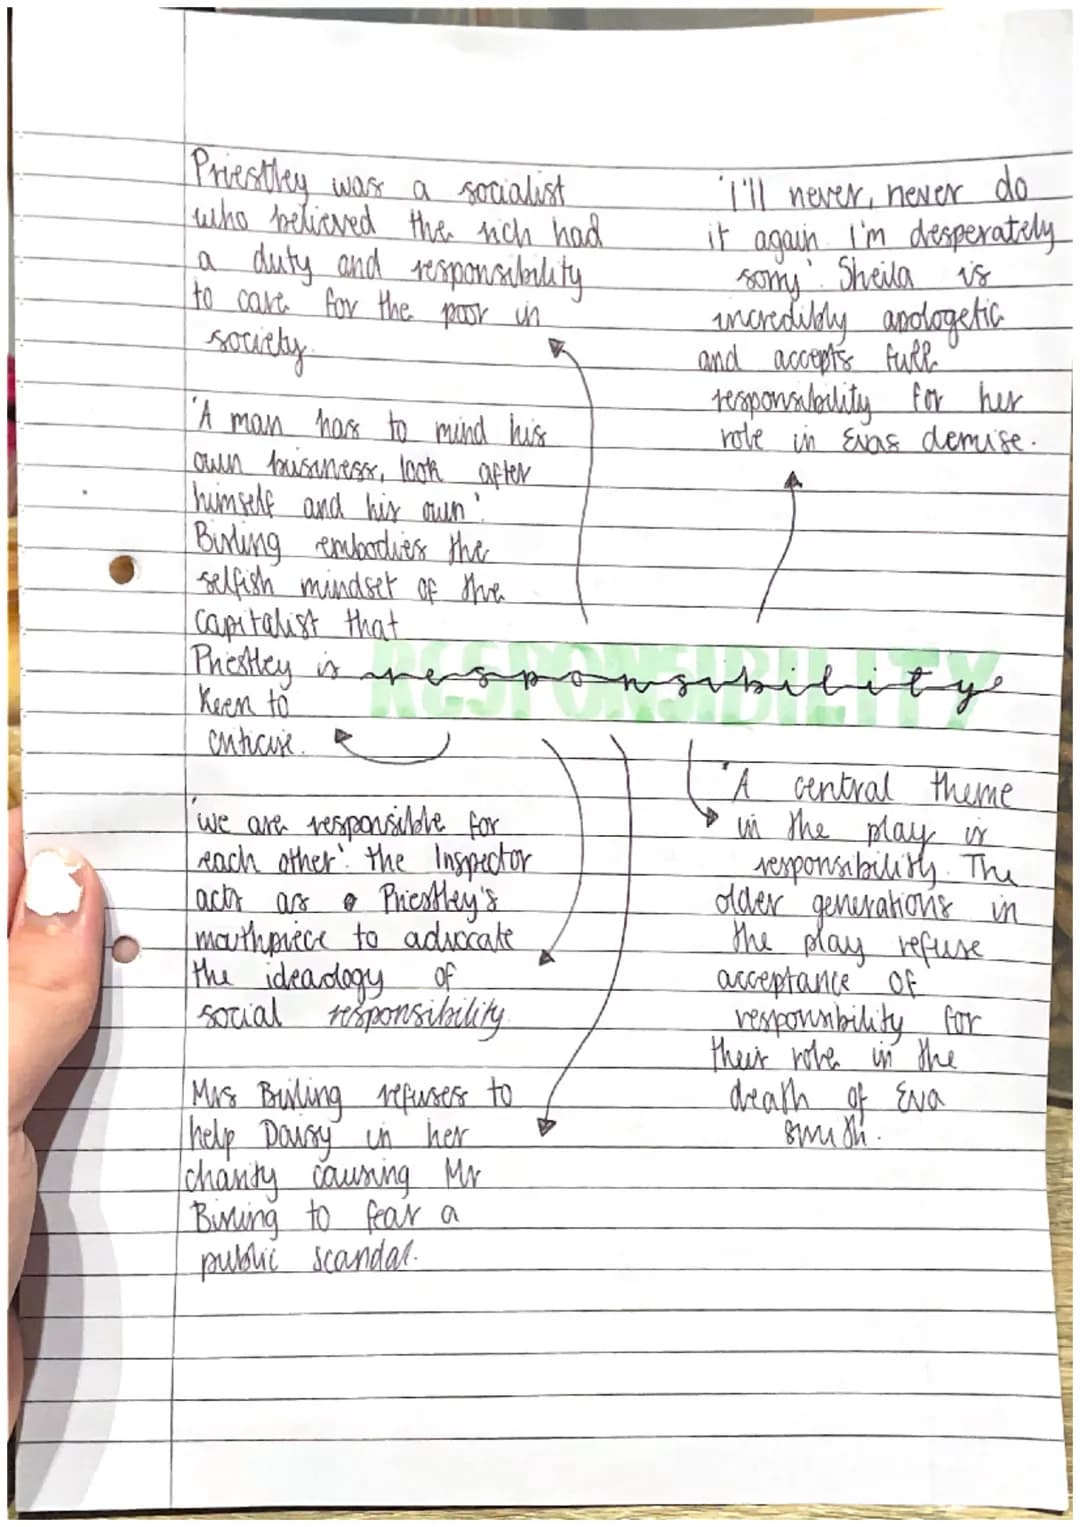 Priestley was a socialist
who believed the rich had
a duty and responsibility
to care for the poor in
society.
'A man has to mind his
own business, look after
himself and his own'.
Birling embodies the
selfish mindset of the
capitalist that
Priestley is
keen to
criticise.
'we are responsible for
each other'. the Inspector
acts as Priestley's
mouthpiece to advocate
the ideology of
social responsibility.
Mrs Birling refuses to
help Daisy in her
charity causing Mr
Birling to fear a
public scandal.
RESPONSIBILITY
responsibility
'I'll never, never do
it again. I'm desperately
sorry'. Sheila is
incredibly apologetic
and accepts full
responsibility for her
role in Evas demise.
'A central theme
in the play is
responsibility. The
older generations in
the play refuse
acceptance of
responsibility for
their role in the
death of Eva
Smith.